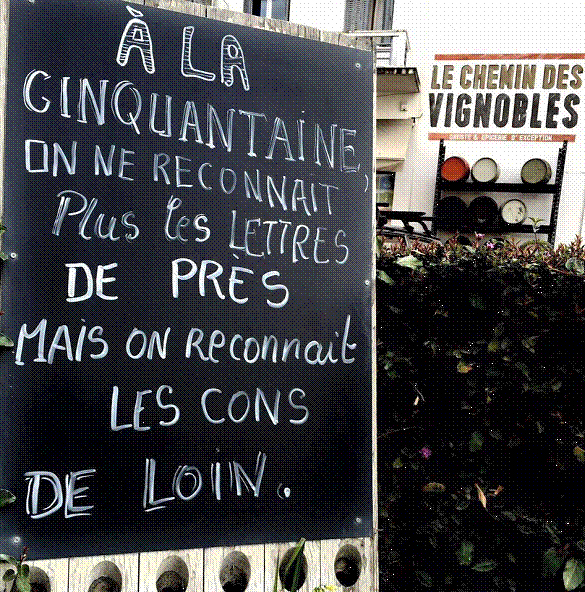 À LA
CINQUANTAINE,
ON NE RECONNAIT
Plus les LETTRES
DE PRÈS
MAiS ON Reconnait
LES CONS
DE LOIN.
LE CHEMIN DES
VIGNOBLES
CAVISTE & EPICERIE D'EXCEPTION